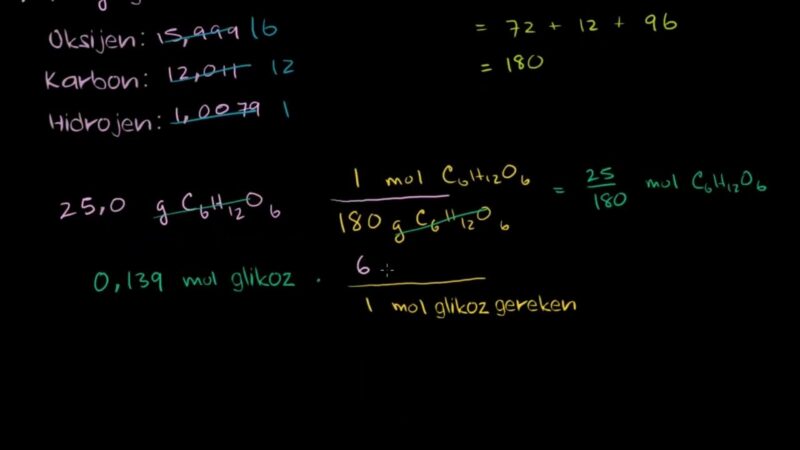 Oksijen: 15,999 16
= 72 + 12 + 96
Karbon: 12,011 12
= 180
Hidrojen: 1,0079 1
25,0 g C₆H₁₂O₆
1 mol C₆H₁₂O₆
180 g C₆H₁₂O₆
= 25/180 mol C₆H₁₂O₆
0,139 mol glikoz ·
6
1 mol glikoz gereken